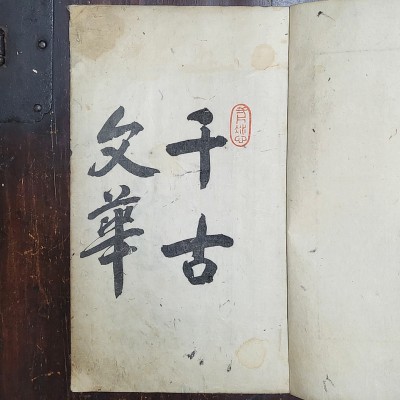 千古
文華